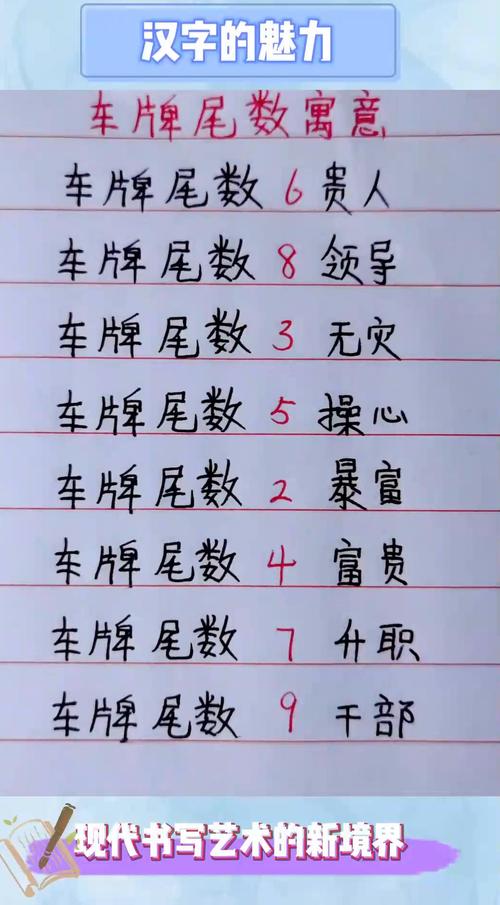 汉字的魅力
车牌尾数寓意
车牌尾数 6 贵人
车牌尾数 8 领导
车牌尾数 3 无灾
车牌尾数 5 操心
车牌尾数 2 暴富
车牌尾数 4 富贵
车牌尾数 7 升职
车牌尾数 9 干部
现代书写艺术的新境界